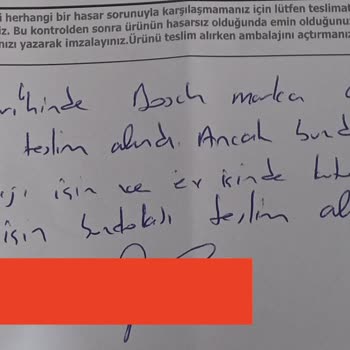 i herhangi bir hasar sorunuyla karşılaşmamanız için lütfen teslimat
iz. Bu kontrolden sonra ürünün hasarsız olduğunda emin olduğunu
nızı yazarak imzalayınız.Ürünü teslim alırken ambalajını açtırmanız
Bosch marka
teslim alındı. Ancak
için ve ev içinde
için teslim al